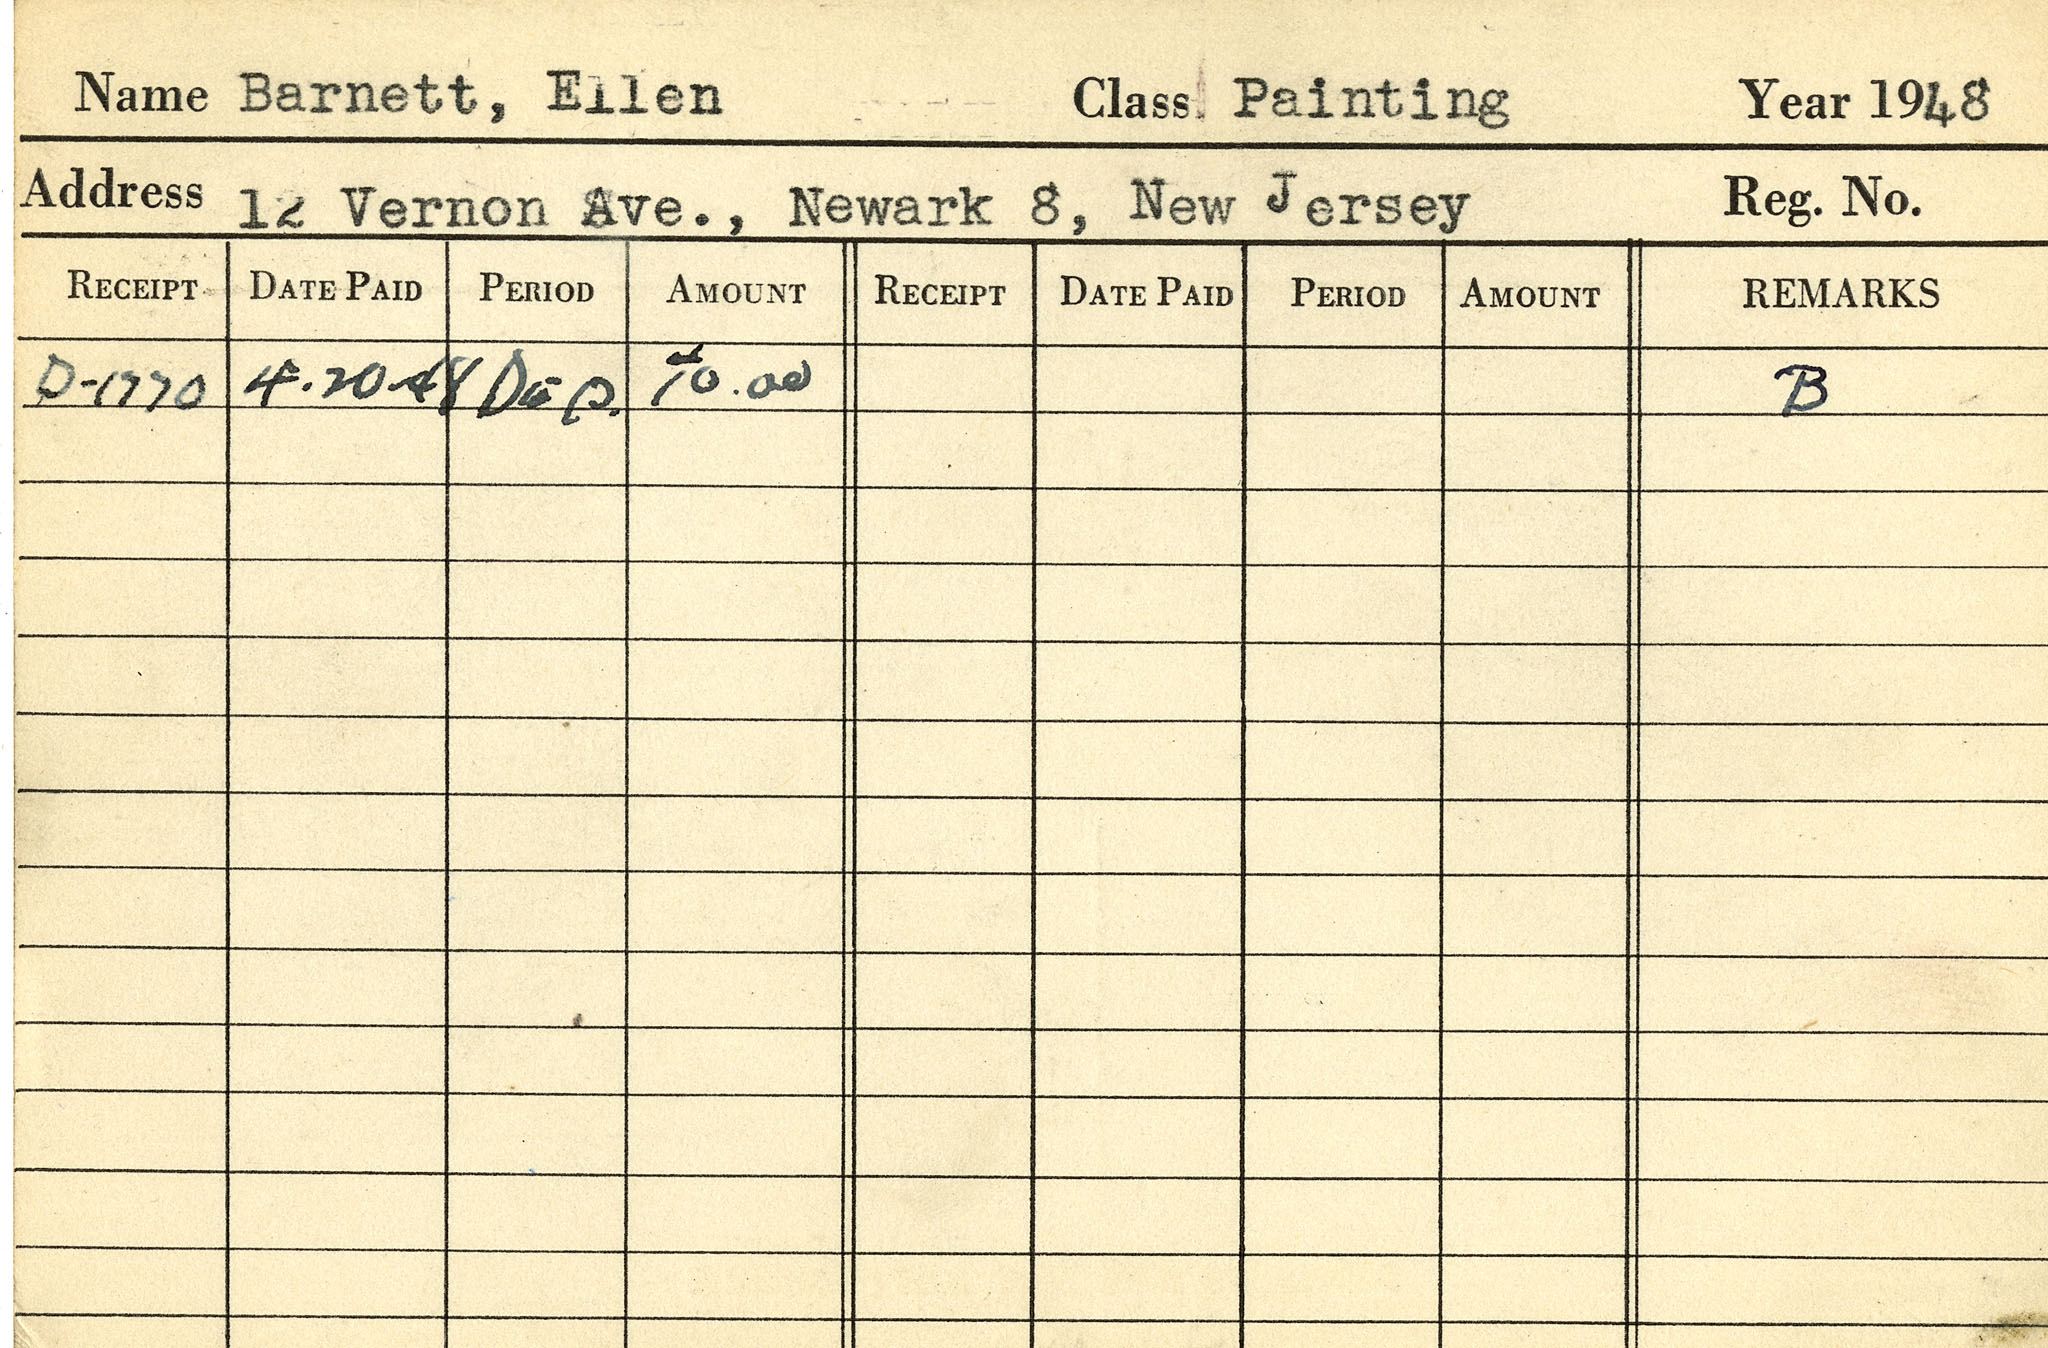 Name Barnett, Ellen Class Painting Year 1948
Address 12 Vernon Ave., Newark 8, New Jersey Reg. No.
RECEIPT DATE PAID PERIOD AMOUNT RECEIPT DATE PAID PERIOD AMOUNT REMARKS
D-1770 4.20.48 Dep. 10.00 B